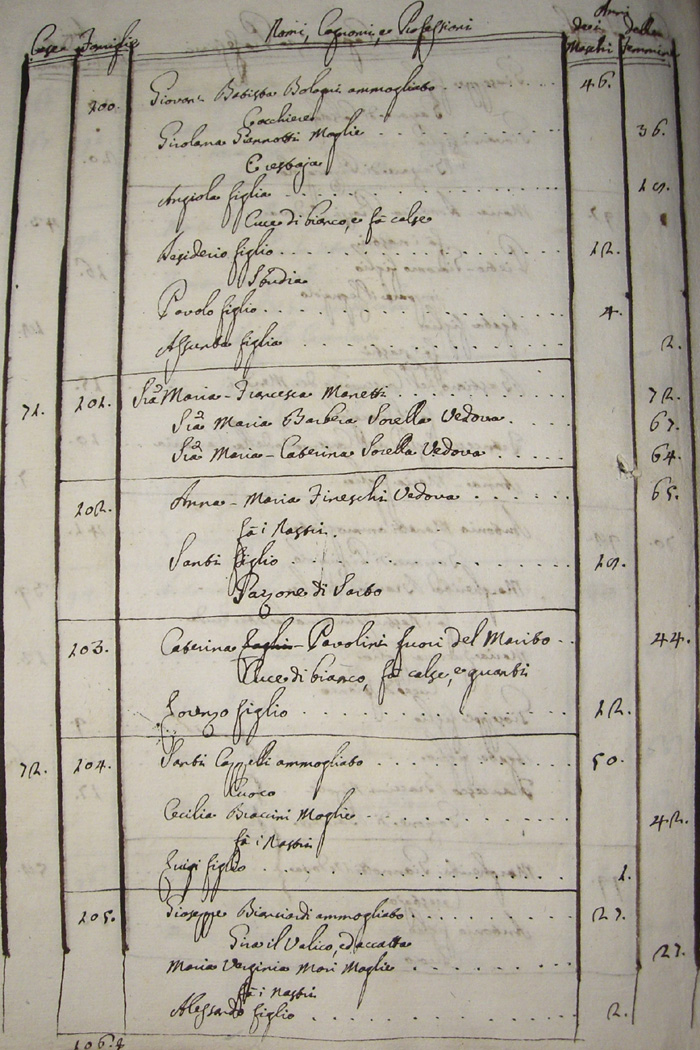 Case Famiglie Nomi, Cognomi, e Professioni Anni dei Maschi delle Femmine
200. Giovan Batista Bologni ammogliato 46.
Cocchiere
Girolama Giannotti Moglie 36.
Angiola figlia 19.
Cuce di bianco, e fà calze
Desiderio figlio 12.
Studia
Pavolo figlio 4.
Assunta figlia 2.
71. 201. Sig.ra Maria-Francesca Manetti 72.
Sig.ra Maria Barbera Sorella Vedova 67.
Sig.ra Maria-Caterina Sorella Vedova 64.
202. Anna-Maria Fineschi Vedova 65.
fà i Nastri.
Santi figlio 19.
Garzone di Sarto
203. Caterina Pavolini fuori del Marito 44.
Cuce di bianco, fà calze, e guanti
Lorenzo figlio 12.
72. 204. Santi Cappelli ammogliato 50.
Cuoco
Cecilia Braccini Moglie 42.
fà i Nastri
Luigi figlio 1.
205. Giuseppe Bianciardi ammogliato 27.
Gira il Valico, ed accatta
Maria Verginia Mori Moglie 27.
fà i Nastri
Alessandro figlio 2.